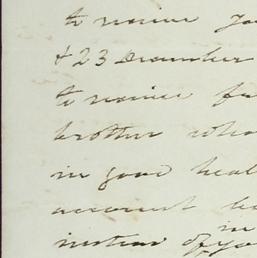 to receive you
& 23 December
to receive fu
brother who
in good heal
account be
in
instead of you